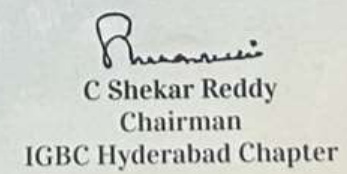 C Shekar Reddy
Chairman
IGBC Hyderabad Chapter